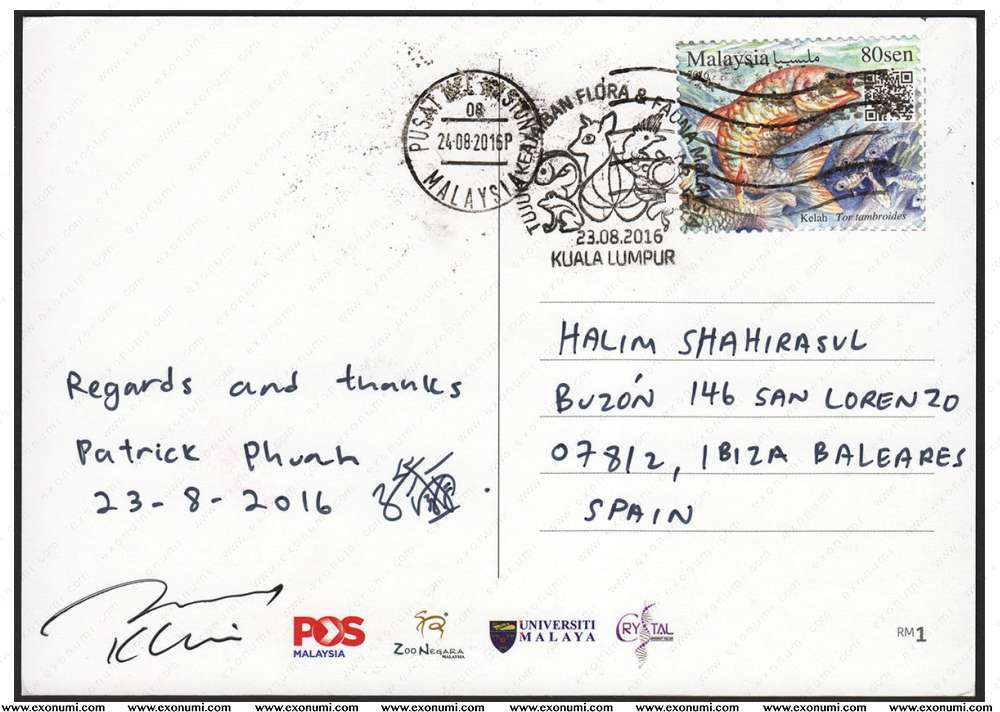 Malaysia مليسيا 80sen
2016
Kelah Tor tambroides
PUSAT MEL NASIONAL
08
24-08-2016P
MALAYSIA
TUJUH KEAJAIBAN FLORA & FAUNA MALAYSIA
23.08.2016
KUALA LUMPUR
Regards and thanks
Patrick Phuah
23-8-2016
HALIM SHAHIRASUL
BUZÓN 146 SAN LORENZO
07812, IBIZA BALEARES
SPAIN
POS
MALAYSIA
ZOO NEGARA
MALAYSIA
UNIVERSITI
MALAYA
CRYSTAL
RM1
www.exonumi.com www.exonumi.com www.exonumi.com www.exonumi.com www.exonumi.com www.exonumi.com www.exonumi.com www.exonumi.com